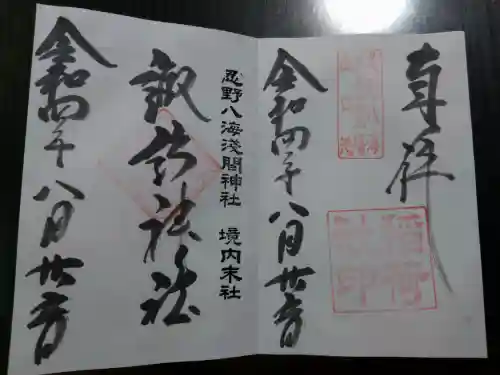 奉拝
令和四年八月廿六日
忍野八海淺間神社 境内末社
諏訪神社
令和四年八月廿六日